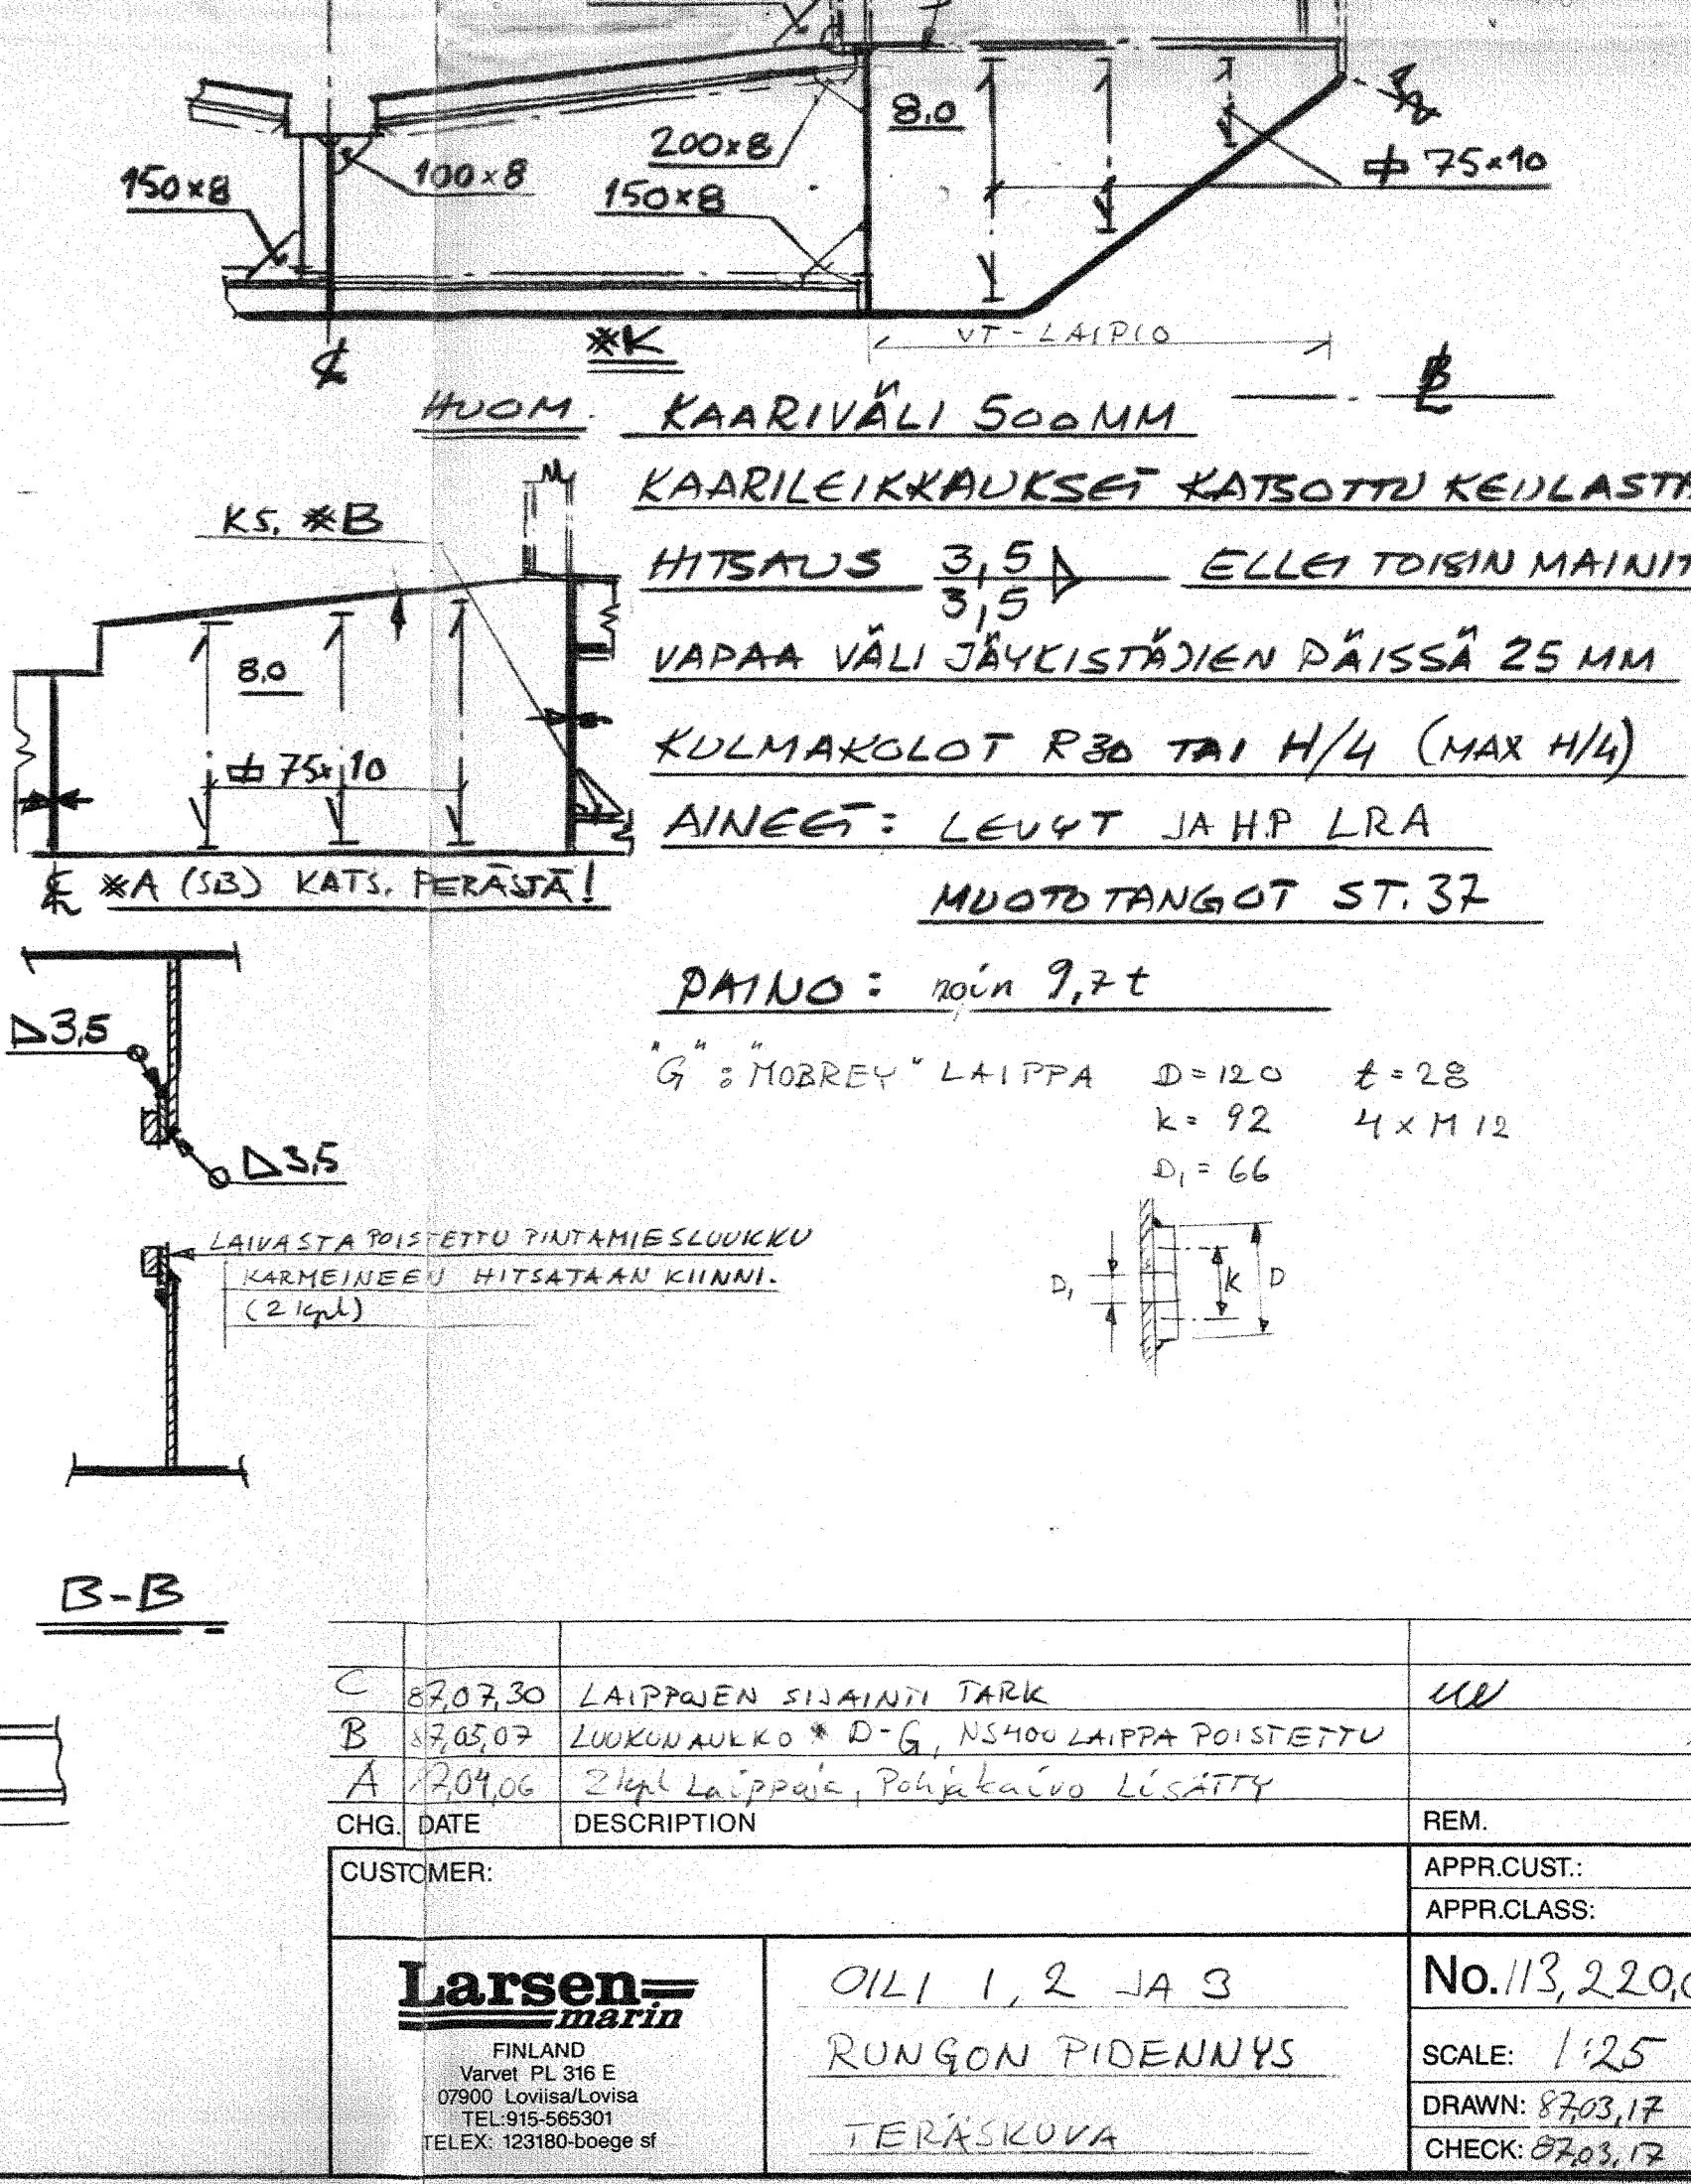 8.0
200×8
100×8
150×8
150×8
75×10
*K
VT - LAIPIO
HUOM. KAARIVÄLI 500MM
KAARILEIKKAUKSET KATSOTTU KEULASTA
KS. *B
HITSAUS 3,5 / 3,5 ELLEI TOISIN MAINIT
8.0
VAPAA VÄLI JÄYKISTÄJIEN PÄISSÄ 25 MM
75×10
KULMAKOLOT R30 TAI H/4 (MAX H/4)
AINEET: LEVYT JA HP LRA
*A (SB) KATS. PERÄSTÄ!
MUOTOTANGOT ST. 37
PAINO: noin 9,7 t
3,5
"G": "MOBREY" LAIPPA D=120 t=28
k= 92 4×M12
D1= 66
3,5
LAIVASTA POISTETTU PINTAMIESLUUKKU
KARMEINEEN HITSATAAN KIINNI.
(2 kpl)
D1 k D
B-B
C 87,07,30 LAIPPOJEN SIJAINTI TARK
B 87,05,07 LUUKUNAUKKO * D-G, NS400 LAIPPA POISTETTU
A 87,04,06 2 kpl Laippoja, Pohjakaivo LISÄTTY
CHG. DATE DESCRIPTION REM.
CUSTOMER:
APPR.CUST.:
APPR.CLASS:
Larsen
marin
FINLAND
Varvet PL 316 E
07900 Loviisa/Lovisa
TEL:915-565301
TELEX: 123180-boege sf
OILI 1, 2 JA 3
RUNGON PIDENNYS
TERÄSKUVA
No. 113,220,0
SCALE: 1:25
DRAWN: 87,03,17
CHECK: 87,03,17